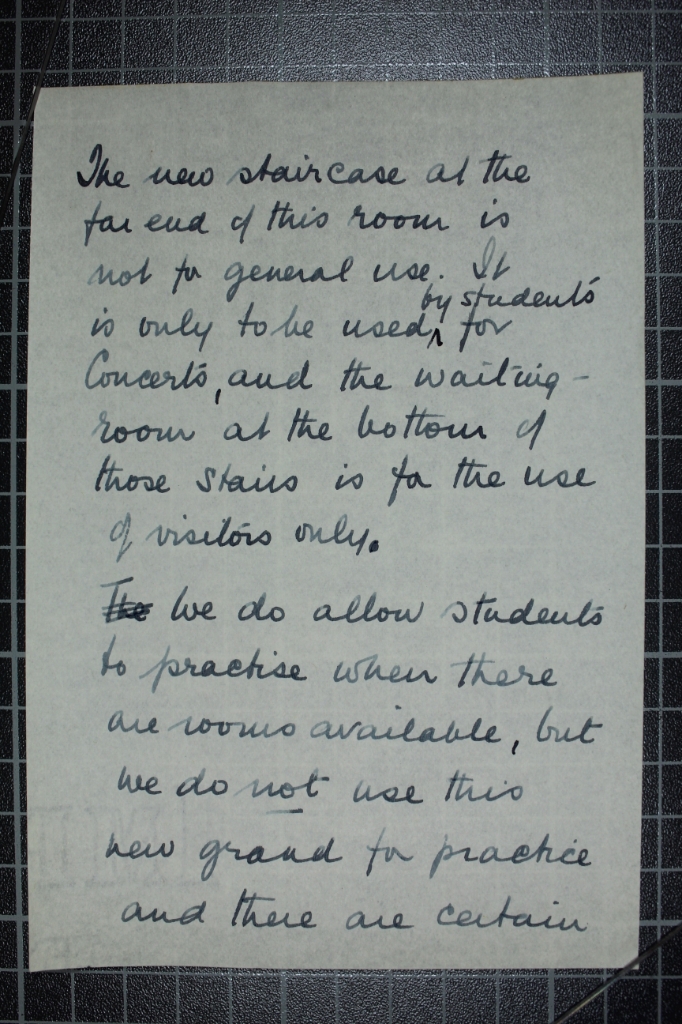 The new staircase at the
far end of this room is
not for general use. It
by students
is only to be used for
Concerts, and the waiting-
room at the bottom of
those stairs is for the use
of visitors only.
The We do allow students
to practise when there
are rooms available, but
we do not use this
new grand for practice
and there are certain